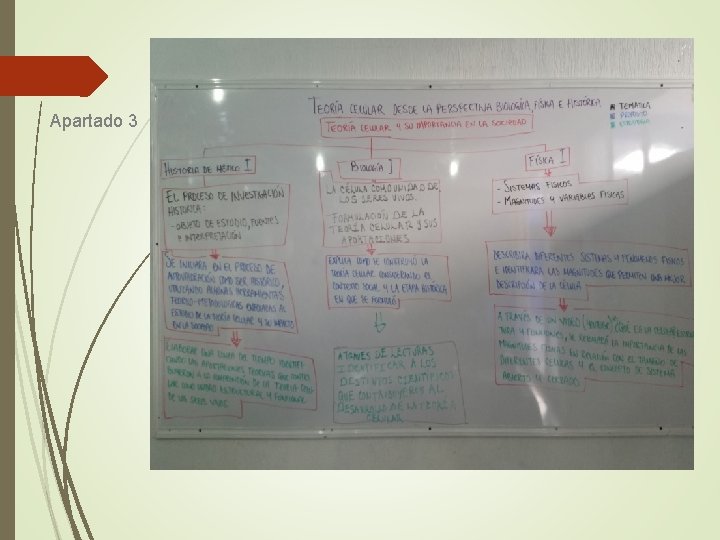 Apartado 3
TEORÍA CELULAR DESDE LA PERSPECTIVA BIOLÓGICA, FÍSICA E HISTÓRICA
TEMÁTICA
PROPÓSITO
ESTRATEGIA
TEORÍA CELULAR Y SU IMPORTANCIA EN LA SOCIEDAD
HISTORIA DE MÉXICO I
EL PROCESO DE INVESTIGACIÓN
HISTÓRICA:
- OBJETO DE ESTUDIO, FUENTES
E INTERPRETACIÓN
SE INICIARÁ EN EL PROCESO DE
COMO SER HISTÓRICO,
UTILIZANDO ALGUNAS HERRAMIENTAS
TEÓRICO-METODOLÓGICAS ENFOCADAS AL
ESTUDIO DE LA TEORÍA CELULAR Y SU IMPACTO
EN LA SOCIEDAD
ELABORAR UNA LÍNEA DEL TIEMPO
LAS APORTACIONES TEÓRICAS QUE
A LA COMPRENSIÓN DE LA TEORÍA
COMO UNIDAD ESTRUCTURAL Y FUNCIONAL
DE LOS SERES VIVOS
BIOLOGÍA I
LA CÉLULA COMO UNIDAD DE
LOS SERES VIVOS.
- FORMULACIÓN DE LA
TEORÍA CELULAR Y SUS
APORTACIONES
EXPLICA COMO SE CONSTRUYÓ LA
TEORÍA CELULAR CONSIDERANDO EL
CONTEXTO SOCIAL Y LA ETAPA HISTÓRICA
EN QUE SE FORMULÓ
A TRAVES DE LECTURAS
IDENTIFICAR A LOS
DISTINTOS CIENTÍFICOS
QUE CONTRIBUYERON AL
DESARROLLO DE LA TEORÍA
CELULAR
FÍSICA I
- SISTEMAS FISICOS
- MAGNITUDES Y VARIABLES FISICAS
DESCRIBIRÁ DIFERENTES SISTEMAS Y FENÓMENOS FISICOS
E IDENTIFICARA LAS MAGNITUDES QUE PERMITEN UNA MEJOR
DESCRIPCIÓN DE LA CÉLULA
A TRAVÉS DE UN VIDEO ¿QUÉ ES LA CÉLULA?
Y FUNCIONES, SE LA IMPORTANCIA DE LAS
MAGNITUDES FISICAS EN RELACION CON EL TAMAÑO DE
DIFERENTES CELULAS Y EL CONCEPTO DE SISTEMA
ABIERTO Y CERRADO